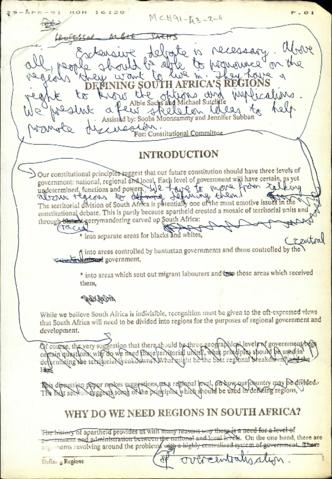 29-APR-91 MON 16:20
P.01
MCH91-
PROFESSOR ALBIE SACHS
Extensive debate is necessary. Above
all, people should be able to pronounce on the
regions they want to live in. They have a
right to know the options and implications.
We present a few skeleton ideas to help
promote discussion.
DEFINING SOUTH AFRICA'S REGIONS
Albie Sachs and Michael Sutcliffe
Assisted by: Soobs Moonsammy and Jennifer Subban
For: Constitutional Committee
INTRODUCTION
Our constitutional principles suggest that our future constitution should have three levels of
government: national, regional and local. Each level of government will have certain, as yet
undetermined, functions and powers. We have to move from talking
about regions to defining them.
The territorial division of South Africa is potentially one of the most emotive issues in the
constitutional debate. This is partly because apartheid created a mosaic of territorial units and
through racial gerrymandering carved up South Africa:
* into separate areas for blacks and whites,
* into areas controlled by bantustan governments and those controlled by the central
government,
* into areas which sent out migrant labourers and those areas which received
them,
While we believe South Africa is indivisible, recognition must be given to the oft-expressed views
that South Africa will need to be divided into regions for the purposes of regional government and
development.
Of course, the very suggestion that there should be three geographical levels of government
certain questions: why do we need these territorial units, what principles should be used in
determining the territorial breakdown? What might be the best regional breakdown
This discussion paper makes suggestions at a regional level, on how our country may be divided.
The next section some of the principles which should be used in defining regions,
WHY DO WE NEED REGIONS IN SOUTH AFRICA?
The history of apartheid provides us with many reasons why there is a need for a level of
government and administration between the national and local levels. On the one hand, there are
revolving around the problems with a highly centralised government. There
Defining Regions
overcentralisation.